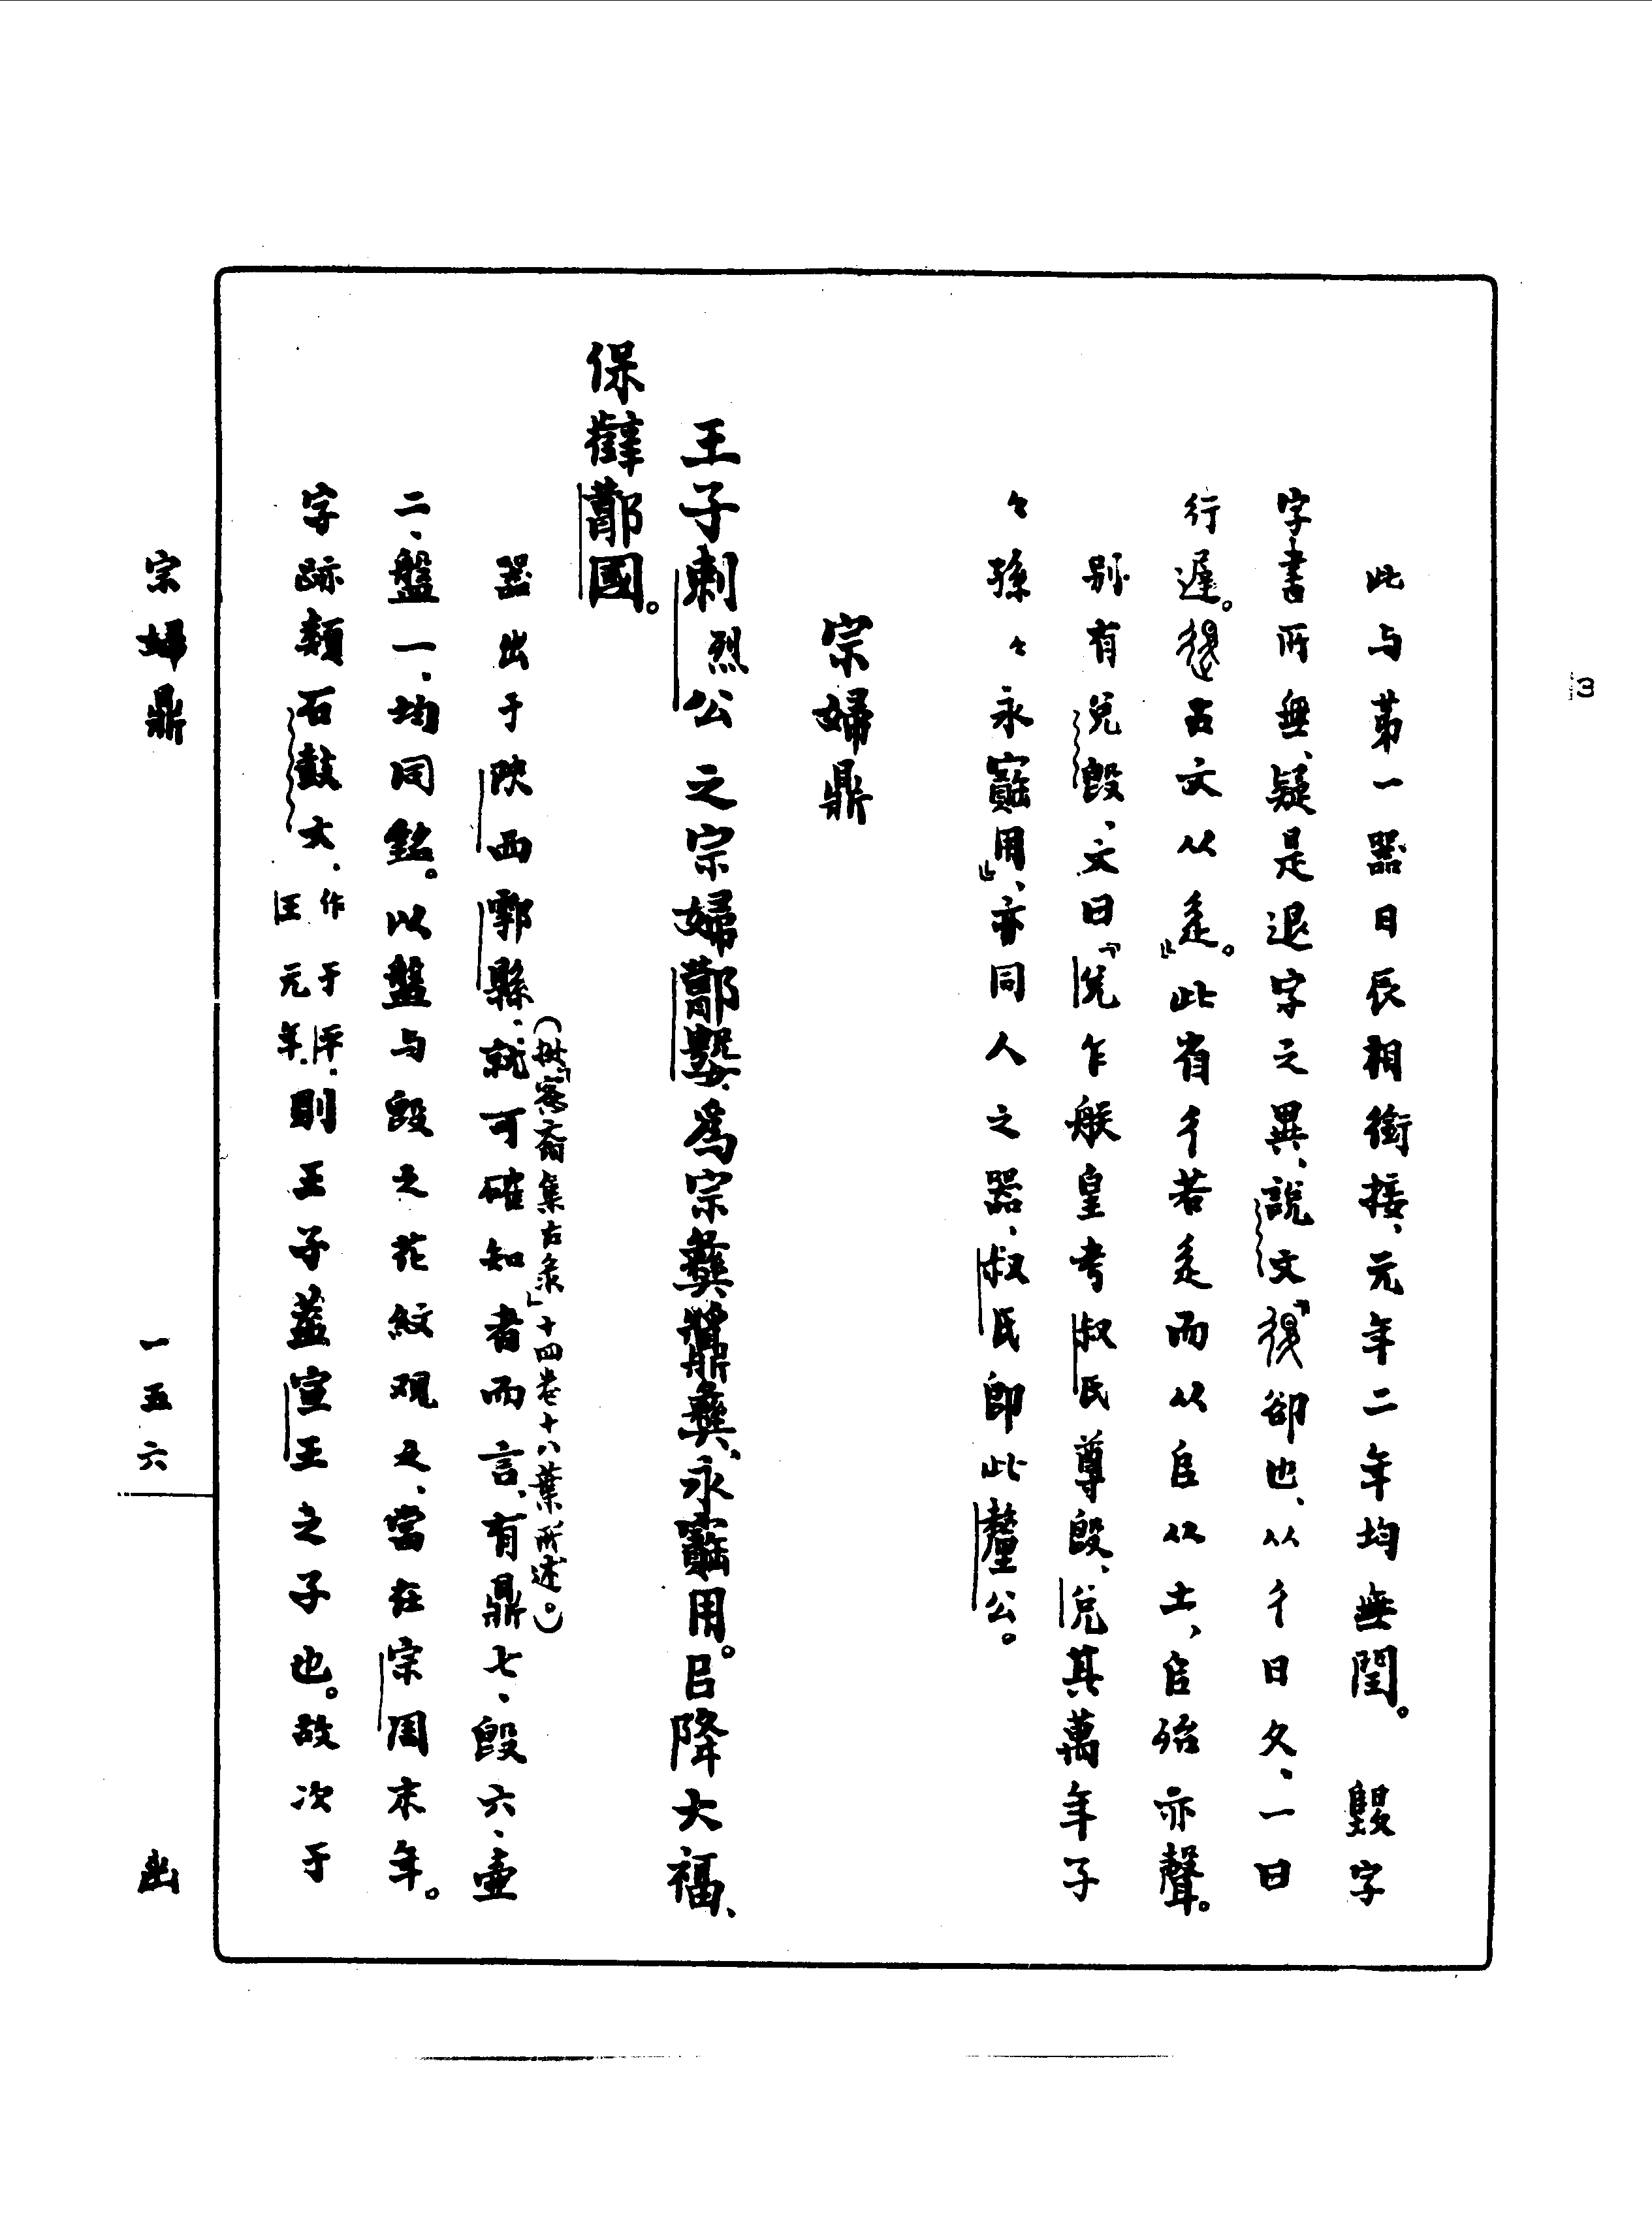 此与苐一器日辰相銜接、元年二年均無閏。字
字書所無、疑是退字之異、説文『復卻也、从彳日夊、一曰
行遲。古文从辵』。此省彳若辵而从𠂤从土、𠂤殆亦聲。
別有兌𣪘、文曰『兌乍朕皇考叔氏尊𣪘、兌其萬年子
〻孫〻永寳用』、亦同人之器、叔氏即此釐公。
宗婦鼎
王子剌烈公之宗婦䣙嫛、為宗彝𩱧彝、永寳用。㠯降大福、
保辥䣙國。
器出于陝西鄠縣、(据『愙齋集古录』十四卷十八葉所述。)就可確知者而言、有鼎七、𣪘六、壷
二、盤一、均同銘。以盤与𣪘之花紋观之、當在宗周末年。
字跡類石鼓文、作于平王元年、則王子蓋宣王之子也。故次于
宗婦鼎
一五六
3